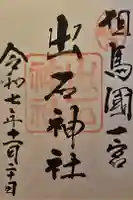 但馬國一宮
出石神社
令和七年十一月二十日